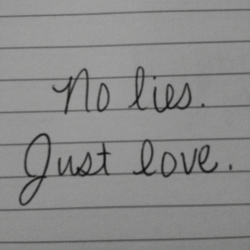 No lies.
Just love.